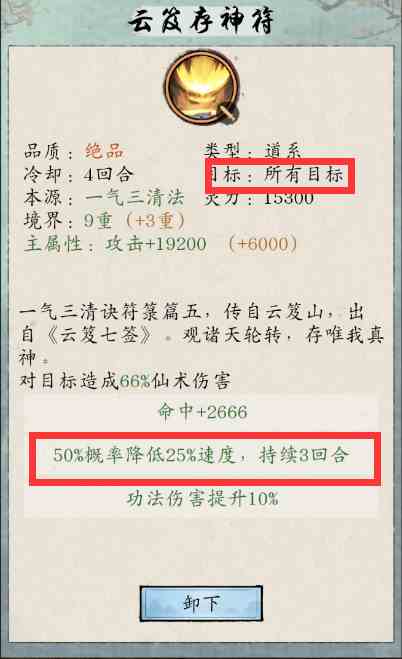 云笈存神符
品质：绝品 类型：道系
冷却：4回合 目标：所有目标
本源：一气三清法 灵力：15300
境界：9重（+3重）
主属性：攻击+19200 （+6000）
一气三清诀符箓篇五，传自云笈山，出
自《云笈七签》。观诸天轮转，存唯我真
神。
对目标造成66%仙术伤害
命中+2666
50%概率降低25%速度，持续3回合
功法伤害提升10%
卸下